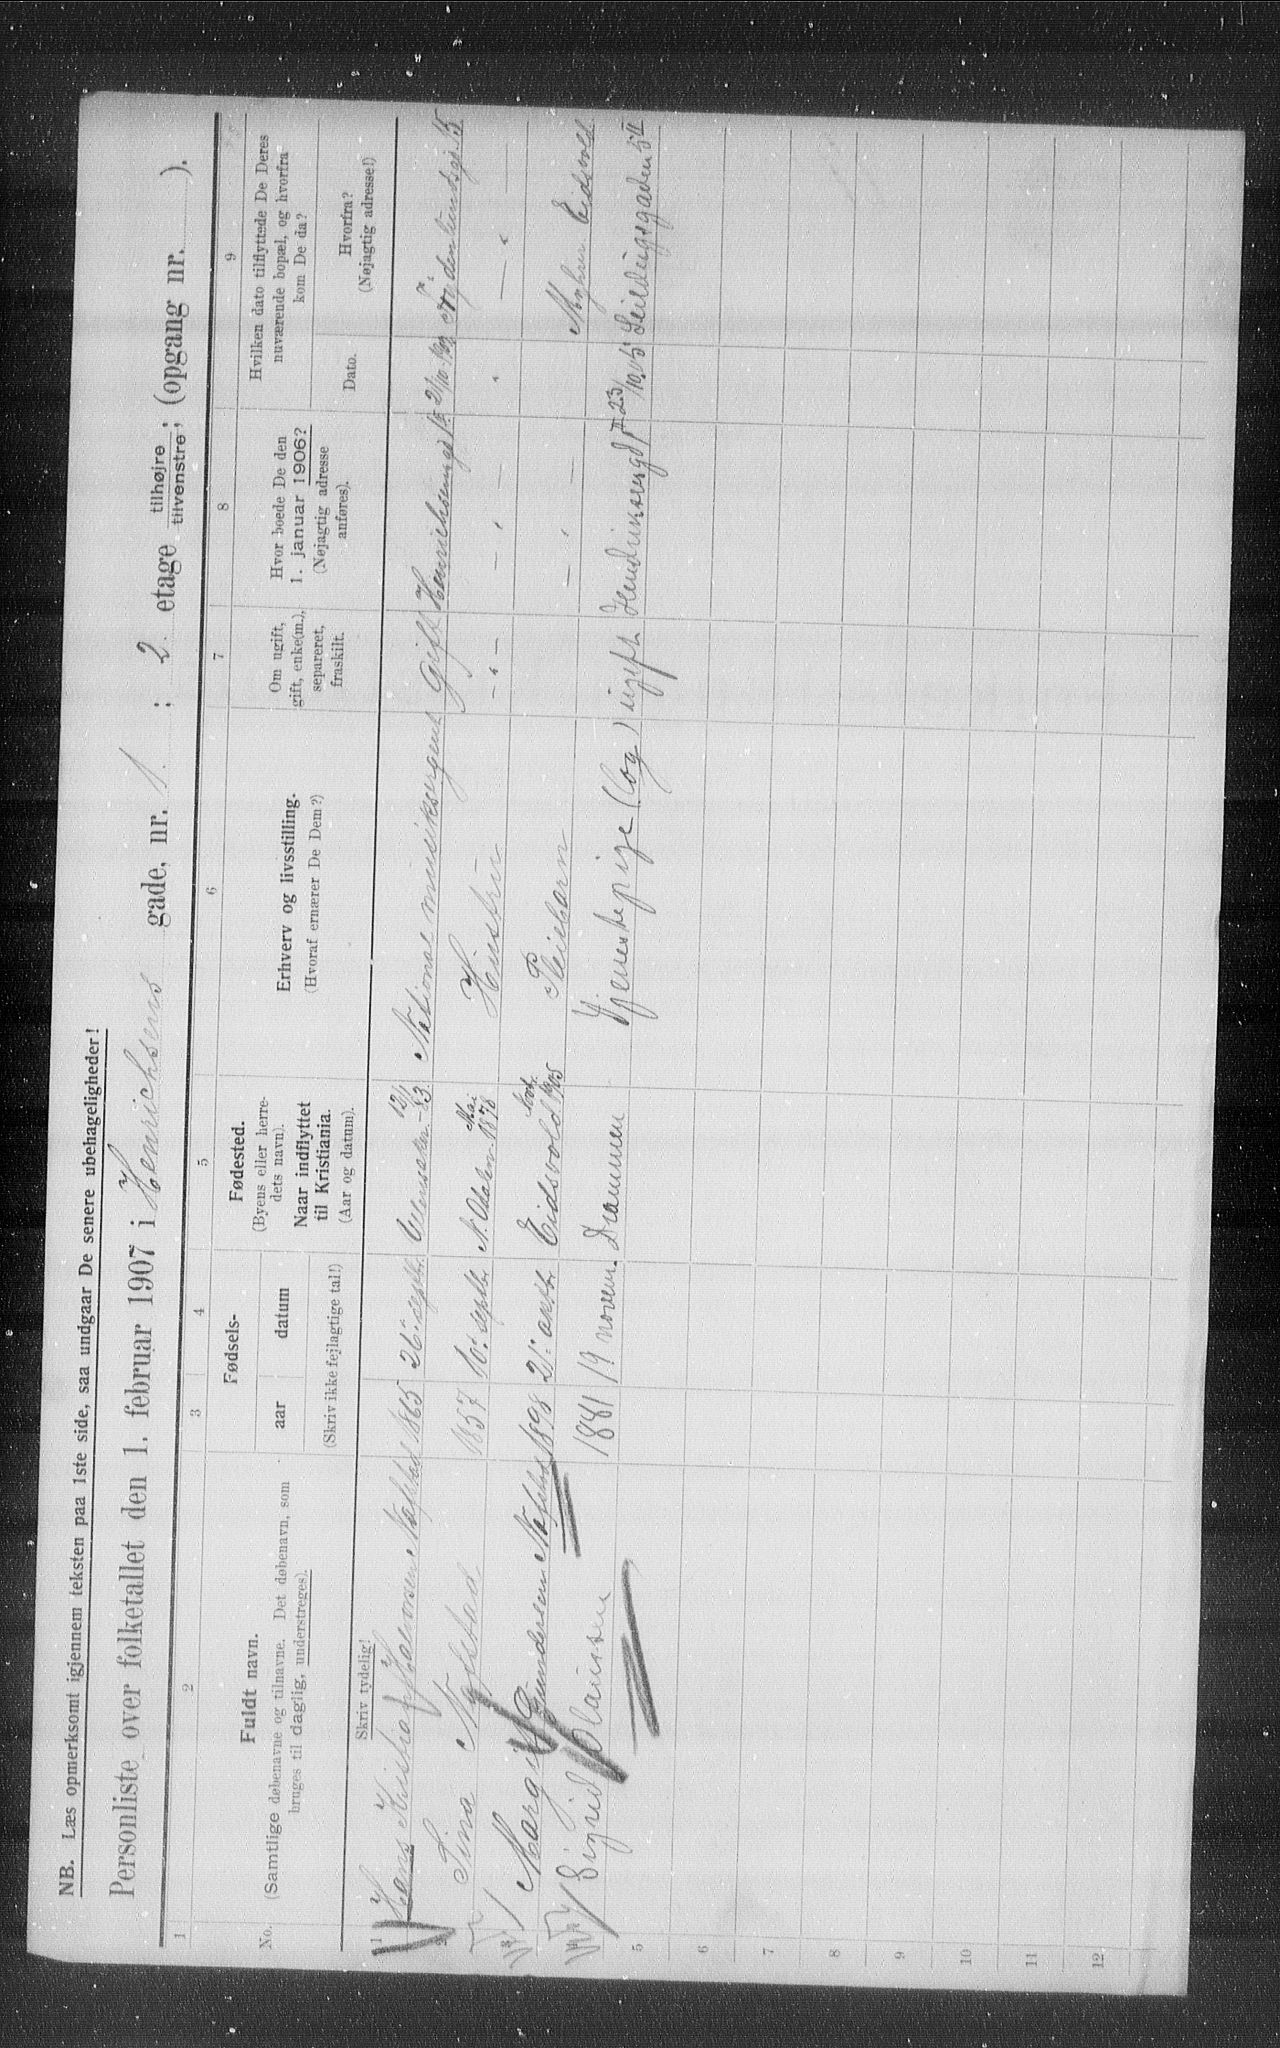 NB. Læs opmerksomt igjennem teksten paa 1ste side, saa undgaar De senere ubehageligheder!
Personliste over folketallet den 1. februar 1907 i Henrichsens gade, nr. 1. ; 2. etage tilhøjre tilvenstre; (opgang nr. ).
1 2 3 4 5 6 7 8 9
No.
Fuldt navn.
(Samtlige døbenavne og tilnavne. Det døbenavn, som
bruges til daglig, understreges).
Skriv tydelig!
Fødsels-
aar datum
(Skriv ikke fejlagtige tal!)
Fødested.
(Byens eller herre-
dets navn).
Naar indflyttet
til Kristiania.
(Aar og datum).
Erhverv og livsstilling.
(Hvoraf ernærer De Dem?)
Om ugift,
gift, enke(m.),
separeret,
fraskilt.
Hvor boede De den
1. januar 1906?
(Nøjagtig adresse
anføres).
Hvilken dato tilflyttede De Deres
nuværende bopæl, og hvorfra
kom De da?
Dato.
Hvorfra?
(Nøjagtig adresse!)
1 Hans Kristian Halvorsen 1865 26. septbr. Ullensaker 12/1 -83. National musiksergent Gift
2 Tina 1857 10. septbr N. Odalen Mai 1878 Hustru - " -
3 Margit Gundersen 1898 21. oktbr Eidsvold 1905 Pleiebarn Eidsvold
4 Sigrid Clausen 1881 19 novem. Drammen Tjenestepige (Log) ugift 23/10.05 Seildugsgaden 5 II
5
6
7
8
9
10
11
12